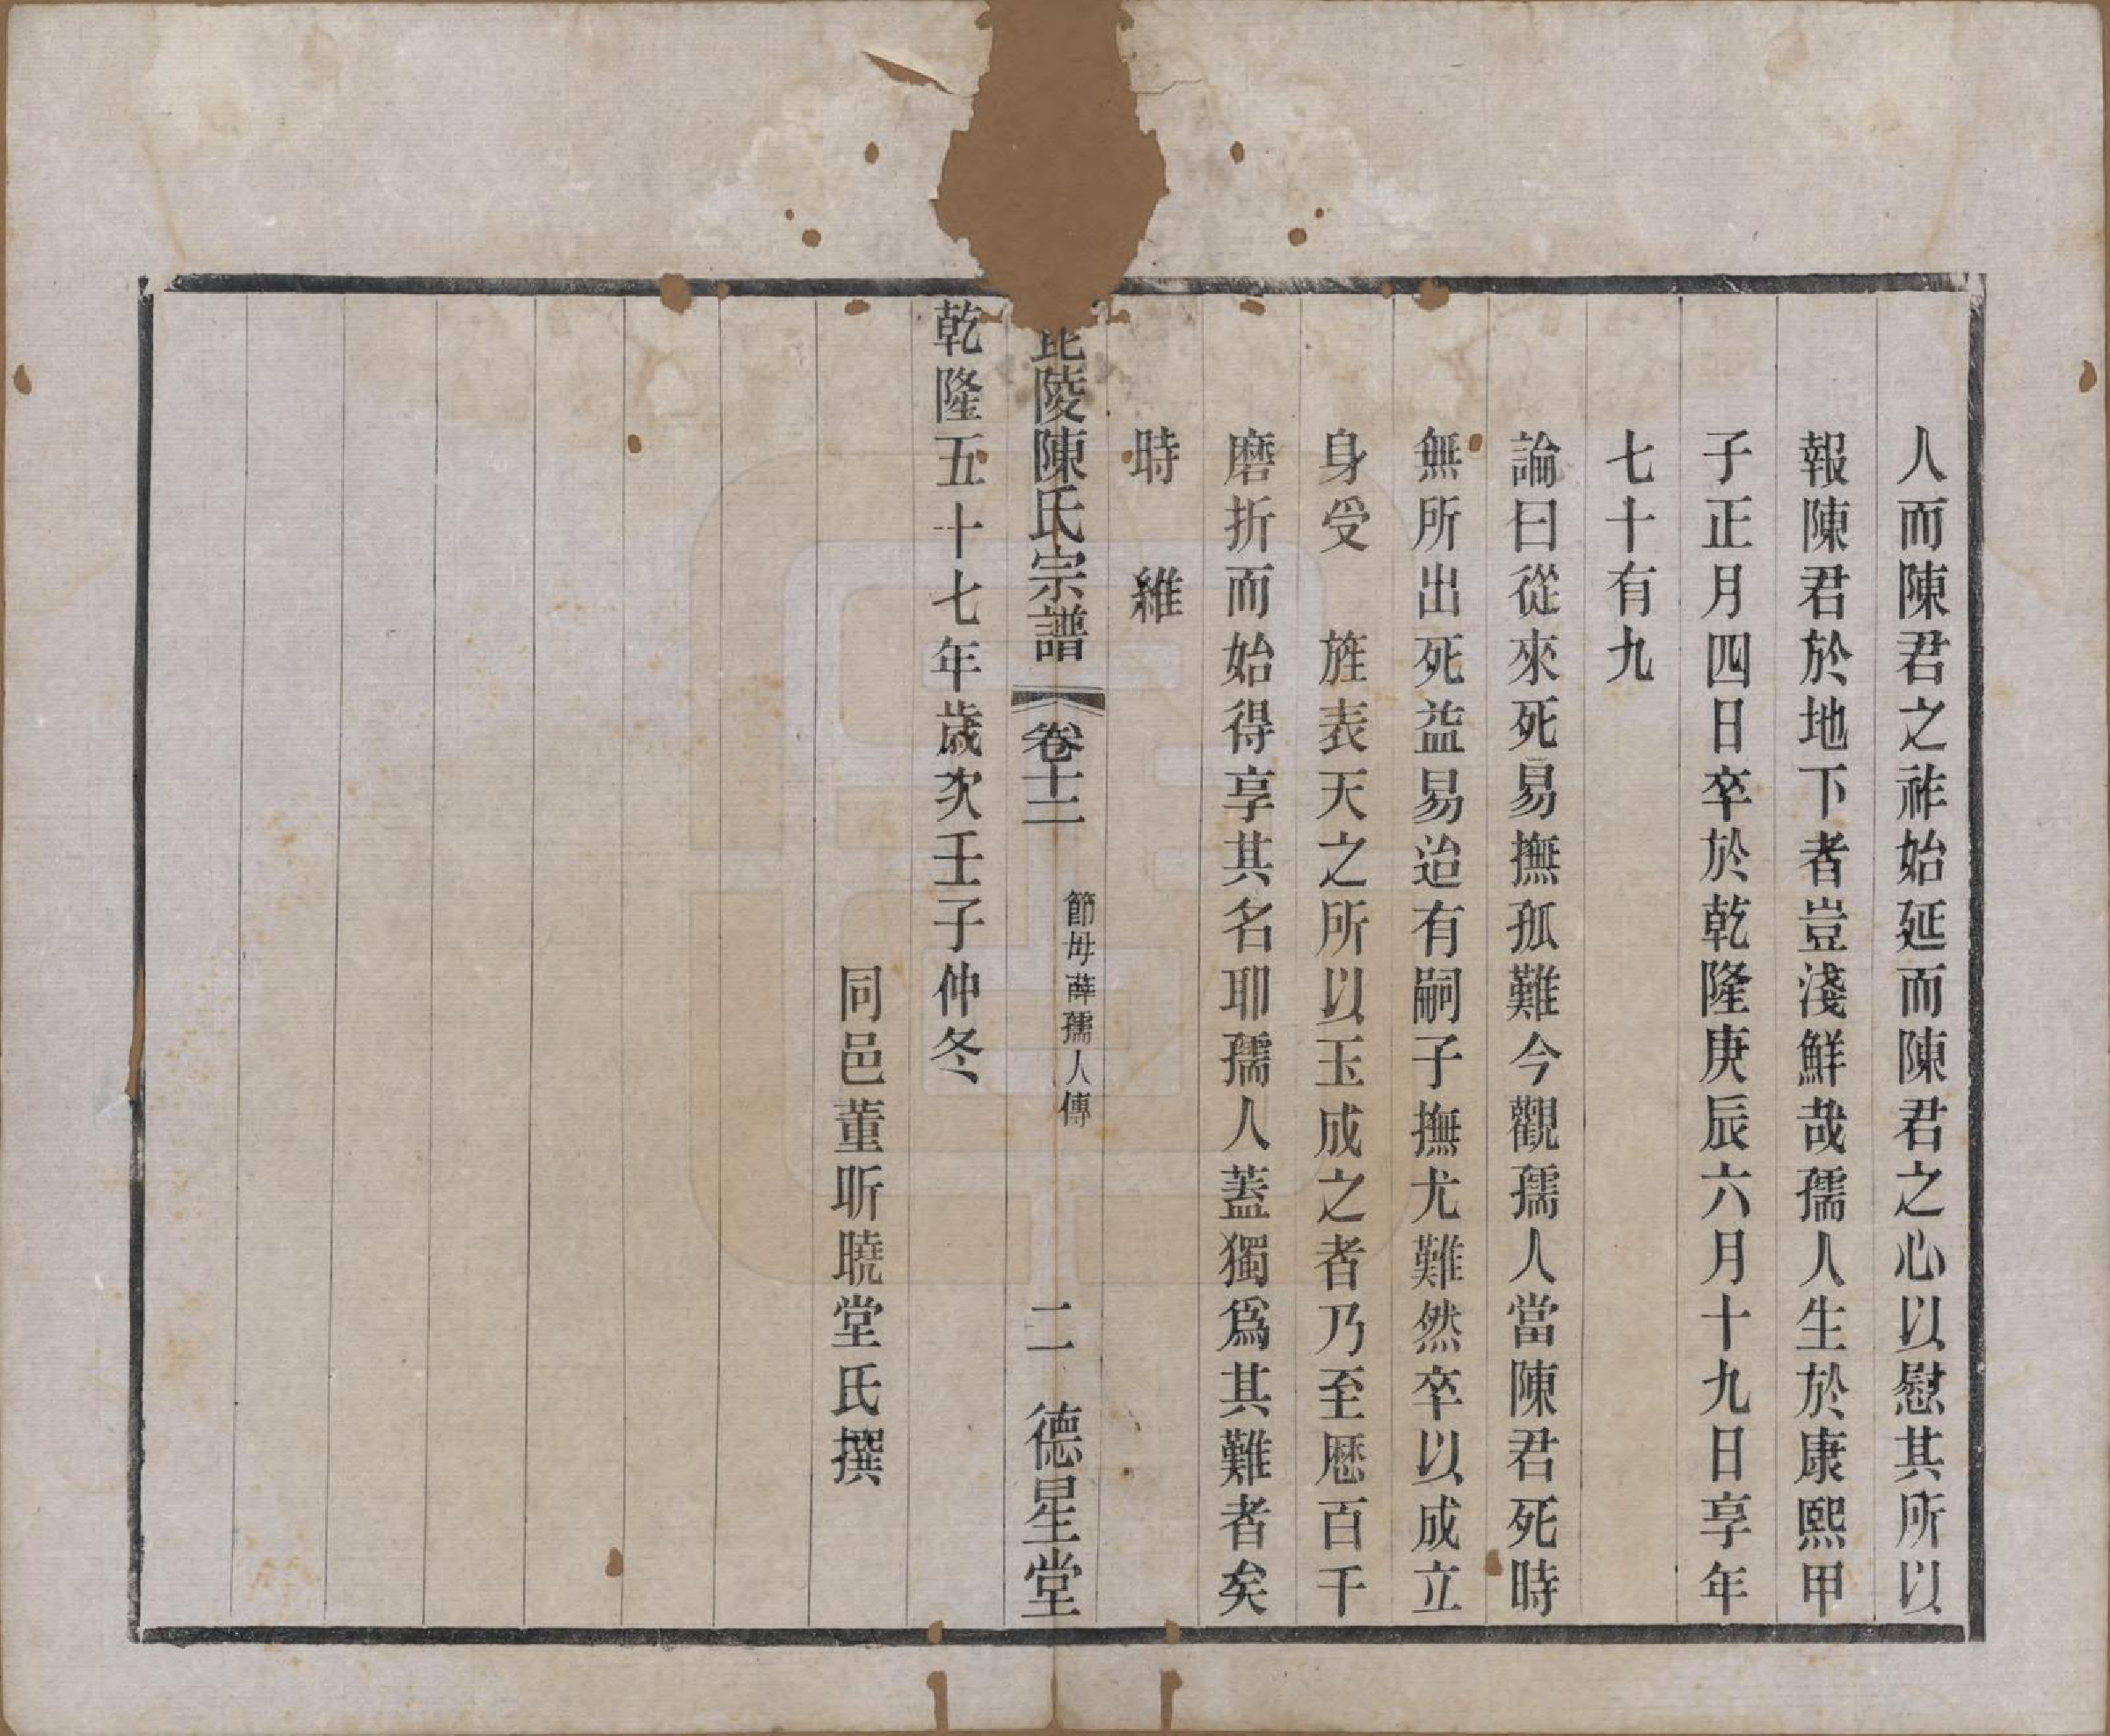 人而陳君之祚始延而陳君之心以慰其所以
報陳君於地下者豈淺鮮哉孺人生於康熙甲
子正月四日卒於乾隆庚辰六月十九日享年
七十有九
論曰從來死易撫孤難今觀孺人當陳君死時
無所出死益易迨有嗣子撫尤難然卒以成立
身受　旌表天之所以玉成之者乃至歷百千
磨折而始得享其名耶孺人蓋獨爲其難者矣
時　維
毘陵陳氏宗譜　卷十二　節母薛孺人傳　二　德星堂
乾隆五十七年歲次壬子仲冬
同邑董昕曉堂氏撰